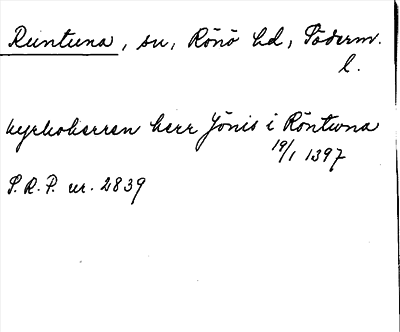 Runtuna, sn, Rönö hd, Söderm.
l.
kyrkoherren herr Jönis i Röntuna
19/1 1397
S.R.P. nr. 2839